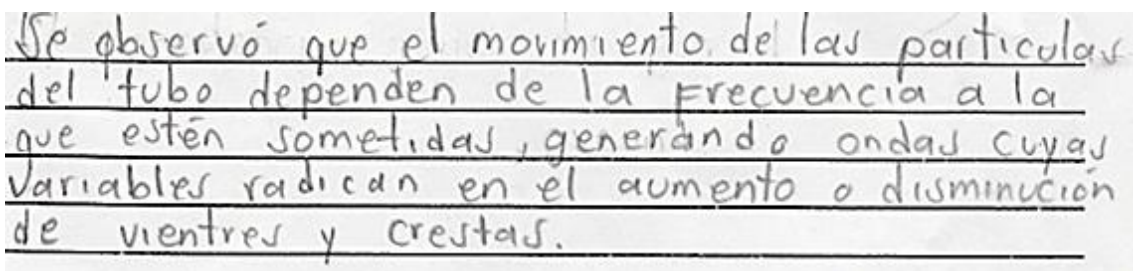 Se observó que el movimiento de las particulas
del tubo dependen de la Frecuencia a la
que estén sometidas, generando ondas cuyas
variables radican en el aumento o disminución
de vientres y crestas.